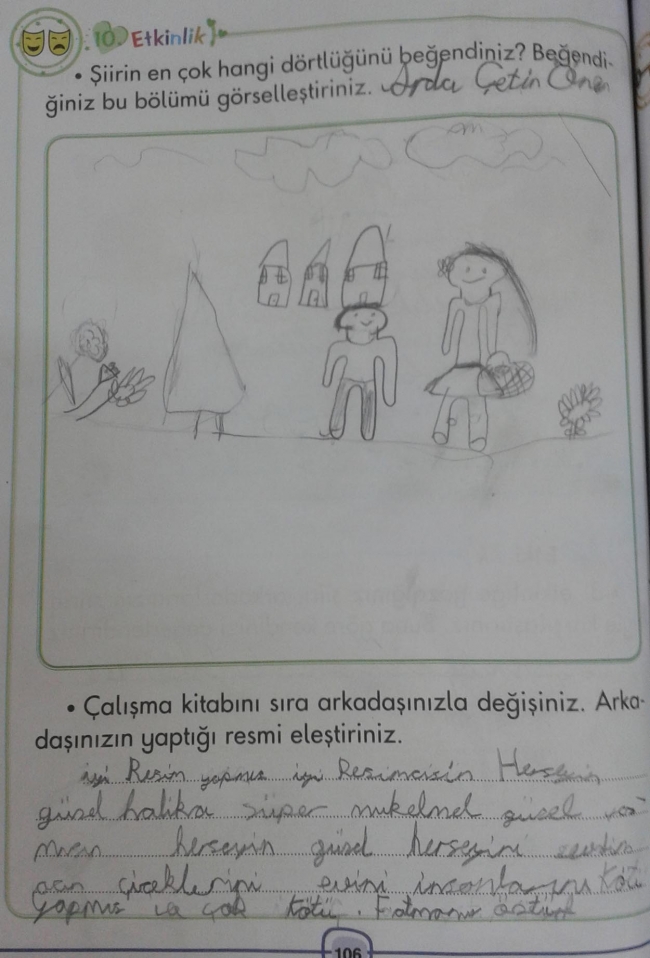 10. Etkinlik
• Şiirin en çok hangi dörtlüğünü beğendiniz? Beğendi-
ğiniz bu bölümü görselleştiriniz. Arda Çetin
• Çalışma kitabını sıra arkadaşınızla değişiniz. Arka-
daşınızın yaptığı resmi eleştiriniz.
iyi Resim yapmıs iyi Resimcisin Herseyin
güsel halika süper mukelmel gücel
herseyin güsel herseyini
çiceklerini evini insanlarını kötü
yapmıs ca çok kötü. Fatmanur öztürk
106